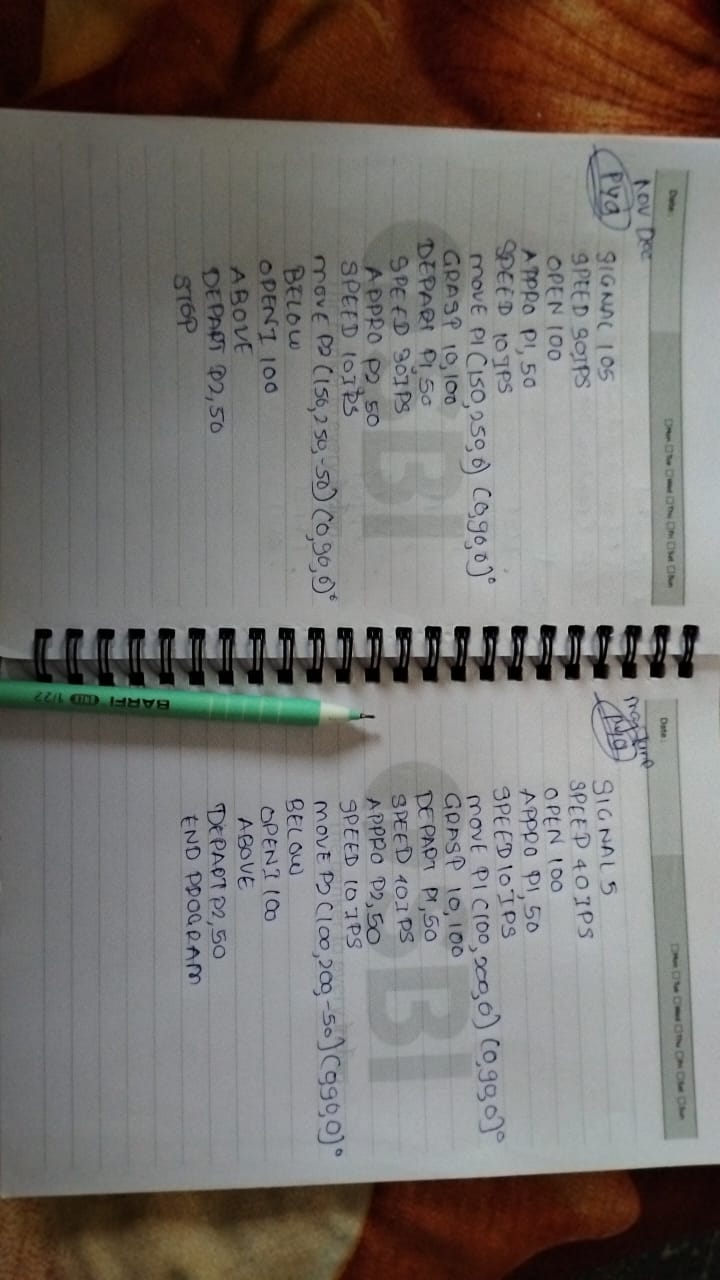 Date:
Mon Tue Wed Thu Fri Sat Sun
Nov Dec
PYQ
SIGNAL 105
SPEED 30IPS
OPEN 100
APPRO P1, 50
SPEED 10IPS
MOVE P1 (150,250,0) (0,90,0)°
GRASP 10,100
DEPART P1,50
SPEED 30IPS
APPRO P2,50
SPEED 10IPS
MOVE P2 (150,250,-50) (0,90,0)°
BELOW
OPENI 100
ABOVE
DEPART P2,50
STOP
Date:
Mon Tue Wed Thu Fri Sat Sun
May June
PYQ
SIGNAL 5
SPEED 40IPS
OPEN 100
APPRO P1, 50
SPEED 10IPS
MOVE P1 (100,200,0) (0,90,0)°
GRASP 10,100
DEPART P1,50
SPEED 40IPS
APPRO P2,50
SPEED 10IPS
MOVE P2 (100,200,-50) (0,90,0)°
BELOW
OPENI 100
ABOVE
DEPART P2,50
END PROGRAM
SBI
SBI
BARFI